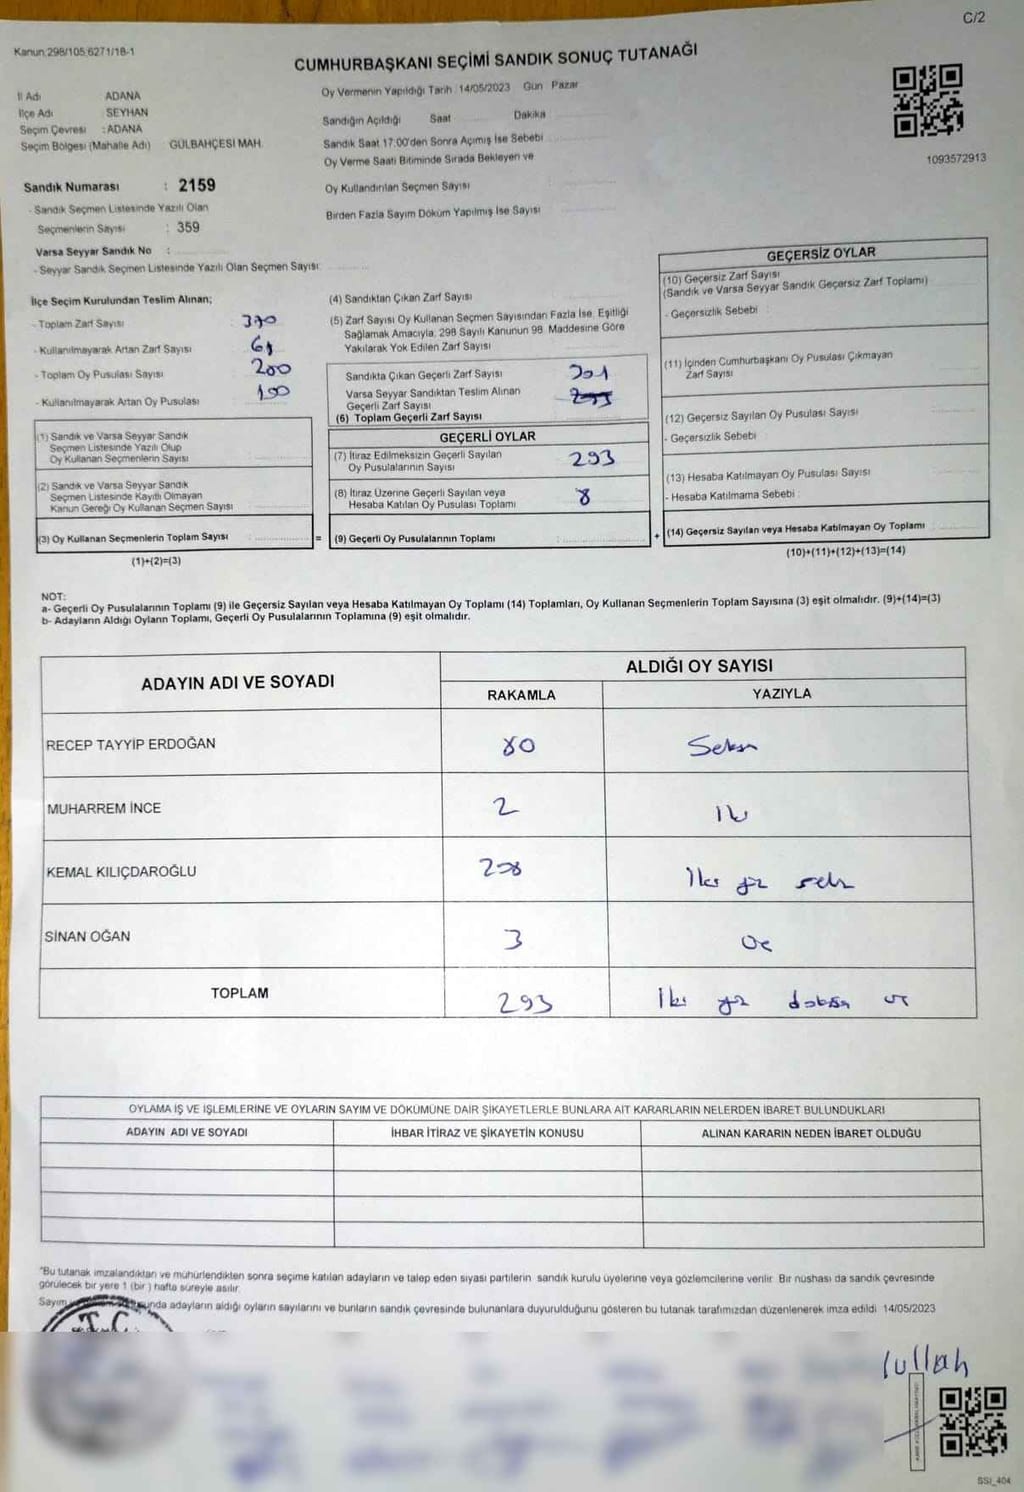 C/2
Kanun:298/105;6271/18-1
CUMHURBAŞKANI SEÇİMİ SANDIK SONUÇ TUTANAĞI
İl Adı ADANA
İlçe Adı : SEYHAN
Seçim Çevresi : ADANA
Seçim Bölgesi (Mahalle Adı) GÜLBAHÇESİ MAH.
Sandık Numarası : 2159
- Sandık Seçmen Listesinde Yazılı Olan
Seçmenlerin Sayısı : 359
Varsa Seyyar Sandık No :
- Seyyar Sandık Seçmen Listesinde Yazılı Olan Seçmen Sayısı:
Oy Vermenin Yapıldığı Tarih : 14/05/2023 Gün Pazar
Sandığın Açıldığı Saat Dakika
Sandık Saat 17:00'den Sonra Açımış İse Sebebi
Oy Verme Saati Bitiminde Sırada Bekleyen ve
Oy Kullandırılan Seçmen Sayısı
Birden Fazla Sayım Döküm Yapılmış İse Sayısı
1093572913
İlçe Seçim Kurulundan Teslim Alınan;
- Toplam Zarf Sayısı : 370
- Kullanılmayarak Artan Zarf Sayısı
- Toplam Oy Pusulası Sayısı
- Kullanılmayarak Artan Oy Pusulası
(1) Sandık ve Varsa Seyyar Sandık
Seçmen Listesinde Yazılı Olup
Oy Kullanan Seçmenlerin Sayısı
(2) Sandık ve Varsa Seyyar Sandık
Seçmen Listesinde Kayıtlı Olmayan
Kanun Gereği Oy Kullanan Seçmen Sayısı
(3) Oy Kullanan Seçmenlerin Toplam Sayısı
(1)+(2)=(3)
(4) Sandıktan Çıkan Zarf Sayısı
(5) Zarf Sayısı Oy Kullanan Seçmen Sayısından Fazla İse, Eşitliği
Sağlamak Amacıyla, 298 Sayılı Kanunun 98. Maddesine Göre
Yakılarak Yok Edilen Zarf Sayısı
Sandıkta Çıkan Geçerli Zarf Sayısı 301
Varsa Seyyar Sandıktan Teslim Alınan
Geçerli Zarf Sayısı
(6) Toplam Geçerli Zarf Sayısı
GEÇERLİ OYLAR
(7) İtiraz Edilmeksizin Geçerli Sayılan
Oy Pusulalarının Sayısı 293
(8) İtiraz Üzerine Geçerli Sayılan veya
Hesaba Katılan Oy Pusulası Toplamı 8
= (9) Geçerli Oy Pusulalarının Toplamı :
GEÇERSİZ OYLAR
(10) Geçersiz Zarf Sayısı
(Sandık ve Varsa Seyyar Sandık Geçersiz Zarf Toplamı)
- Geçersizlik Sebebi :
(11) İçinden Cumhurbaşkanı Oy Pusulası Çıkmayan
Zarf Sayısı
(12) Geçersiz Sayılan Oy Pusulası Sayısı
- Geçersizlik Sebebi :
(13) Hesaba Katılmayan Oy Pusulası Sayısı
- Hesaba Katılmama Sebebi :
+ (14) Geçersiz Sayılan veya Hesaba Katılmayan Oy Toplamı
(10)+(11)+(12)+(13)=(14)
NOT:
a- Geçerli Oy Pusulalarının Toplamı (9) ile Geçersiz Sayılan veya Hesaba Katılmayan Oy Toplamı (14) Toplamları, Oy Kullanan Seçmenlerin Toplam Sayısına (3) eşit olmalıdır. (9)+(14)=(3)
b- Adayların Aldığı Oyların Toplamı, Geçerli Oy Pusulalarının Toplamına (9) eşit olmalıdır.
ADAYIN ADI VE SOYADI ALDIĞI OY SAYISI
RAKAMLA YAZIYLA
RECEP TAYYİP ERDOĞAN 80 Seksen
MUHARREM İNCE 2 İki
KEMAL KILIÇDAROĞLU 208 İki yüz sekiz
SİNAN OĞAN 3 Üç
TOPLAM 293 İki yüz doksan üç
OYLAMA İŞ VE İŞLEMLERİNE VE OYLARIN SAYIM VE DÖKÜMÜNE DAİR ŞİKAYETLERLE BUNLARA AİT KARARLARIN NELERDEN İBARET BULUNDUKLARI
ADAYIN ADI VE SOYADI İHBAR İTİRAZ VE ŞİKAYETİN KONUSU ALINAN KARARIN NEDEN İBARET OLDUĞU
"Bu tutanak imzalandıktan ve mühürlendikten sonra seçime katılan adayların ve talep eden siyasi partilerin sandık kurulu üyelerine veya gözlemcilerine verilir. Bir nüshası da sandık çevresinde
görülecek bir yere 1 (bir) hafta süreyle asılır.
Sayım adayların aldığı oyların sayılarını ve bunların sandık çevresinde bulunanlara duyurulduğunu gösteren bu tutanak tarafımızdan düzenlenerek imza edildi 14/05/2023
T.C
SSI_404